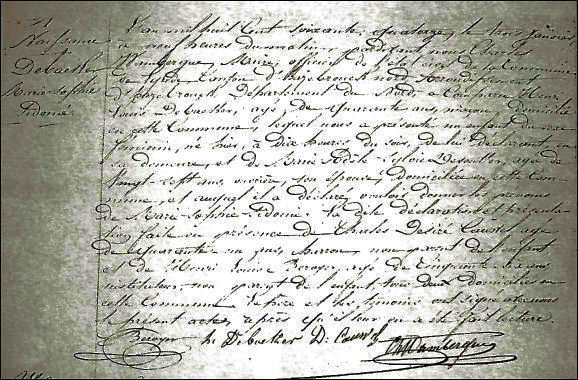 Naissance
Debacker
Marie-Sophie
Sidonie.
L'an mil huit cent soixante quatorze, le trois Janvier
à neuf heures du matin, pardevant nous Charles
Maire, officier de l'état civil de la Commune
d'hazebrouck nord, arrondissement
d'hazebrouck Département du Nord, a comparu Henri
Louis Debacker, âgé de quarante ans, domicilié
en cette Commune; lequel nous a présenté un enfant du sexe
féminin, né hier, à dix heures du soir, de lui déclarant en
sa demeure, et de Marie âgée de
vingt-sept ans, ouvrière, son épouse, domiciliée en cette Com-
mune, et auquel il a déclaré vouloir donner les prénoms
de Marie-Sophie-Sidonie. La dite déclaration et présenta-
tion faite en présence de Charles Désiré Cauwel âgé
de quarante-un ans, non parent de l'enfant
et de Henri Louis Beroyer, âgé de vingt six ans
instituteur, non parent de l'enfant, tous deux domiciliés en
cette Commune. Le père et les témoins ont signé avec nous
le présent acte, après qu'il leur en a été fait lecture.
Beroyer h. Debacker D. Cauwel